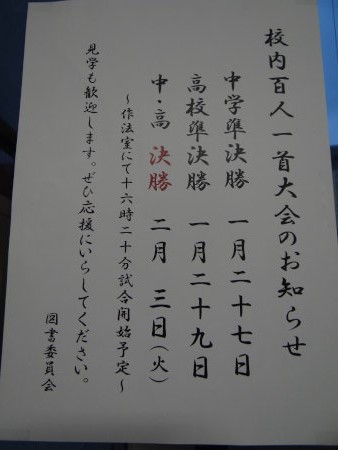 校内百人一首大会のお知らせ
中学準決勝 一月二十七日
高校準決勝 一月二十九日
中・高 決勝 二月 三日(火)
~作法室にて十六時二十分試合開始予定~
見学も歓迎します。ぜひ応援にいらしてください。
図書委員会